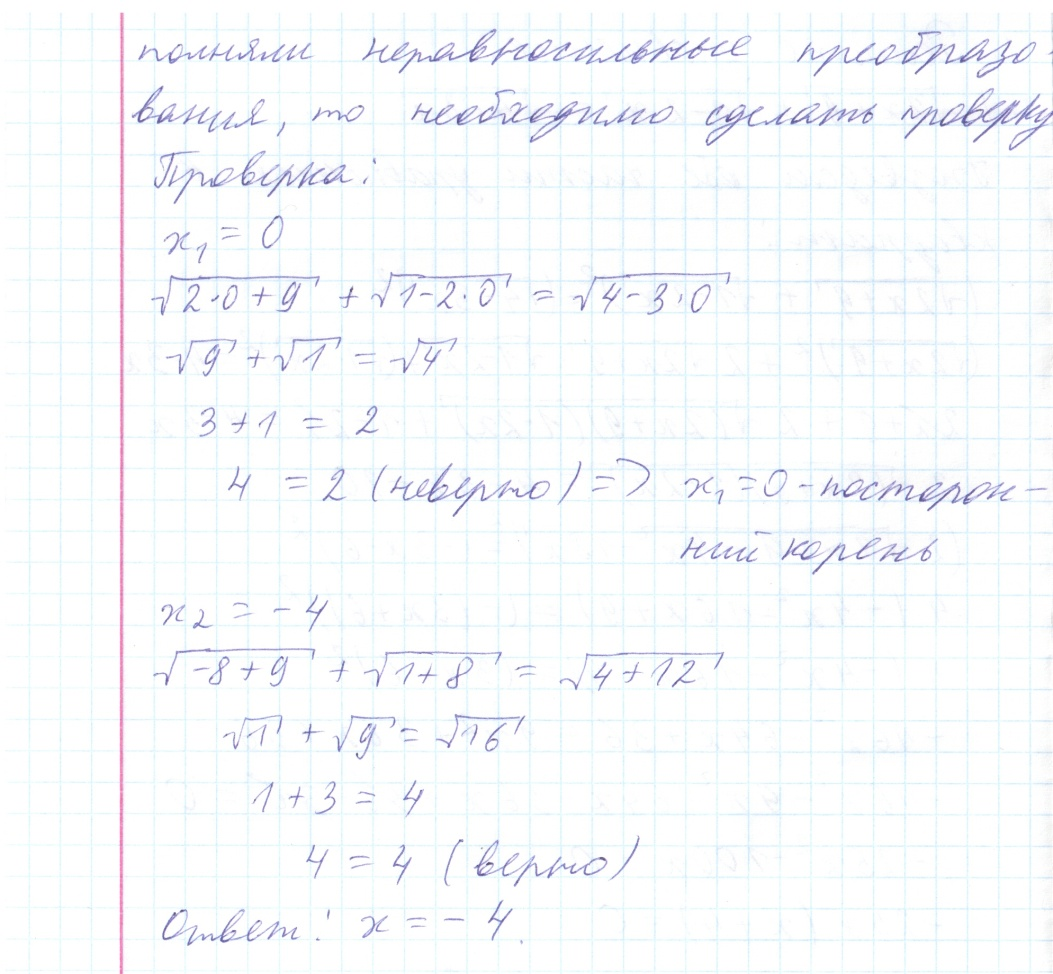 полняли неравносильные преобразо-
вания, то необходимо сделать проверку
Проверка:
x₁ = 0
√(2·0+9) + √(1-2·0) = √(4-3·0)
√9 + √1 = √4
3+1 = 2
4 = 2 (неверно) => x₁=0 - посторон-
ний корень
x₂ = -4
√(-8+9) + √(1+8) = √(4+12)
√1 + √9 = √16
1+3 = 4
4 = 4 (верно)
Ответ: x = -4.